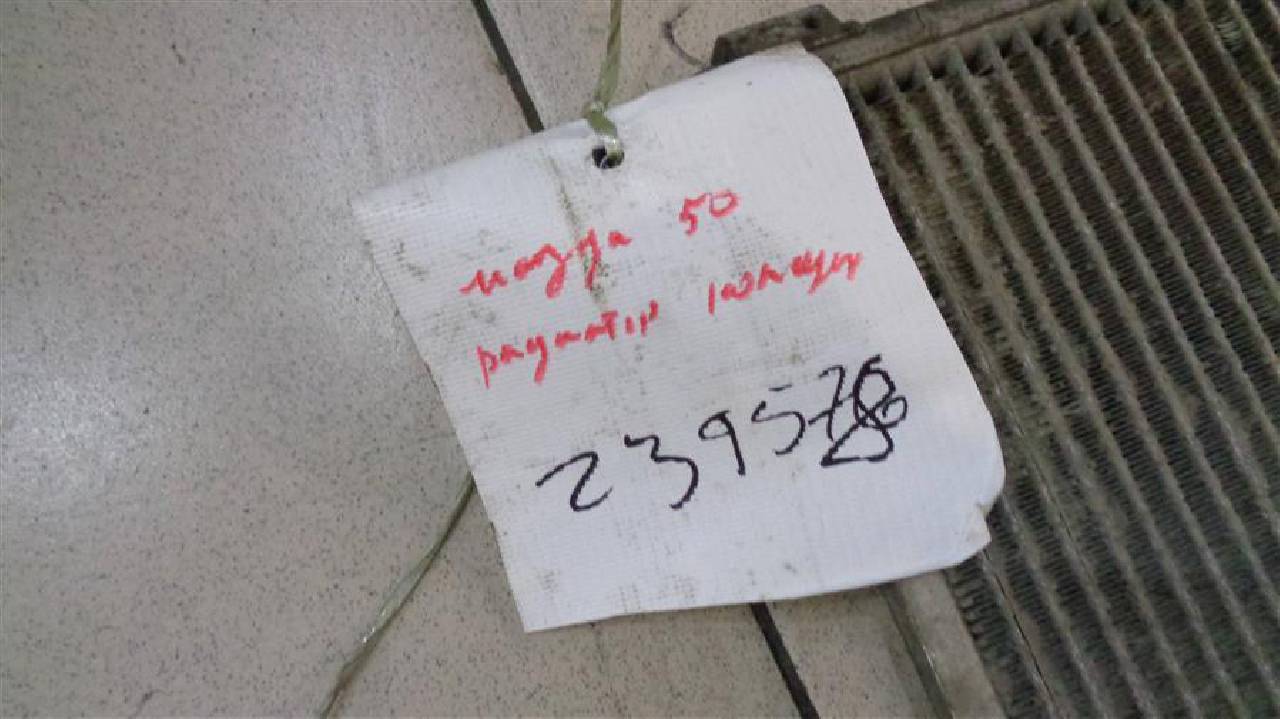 мазда 50
радиатор кондиц
239578